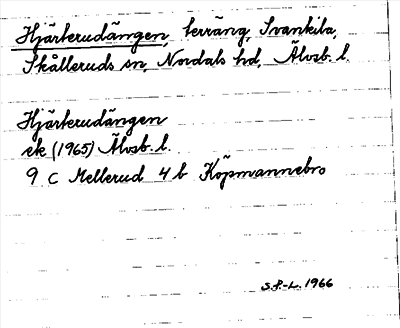 Hjärterudängen, terräng, Svankila,
Skålleruds sn, Nordals hd, Älvsb. l.
Hjärterudängen
ek (1965) Älvsb. l.
9 C Mellerud 4 b Köpmannebro
S.F.-L. 1966